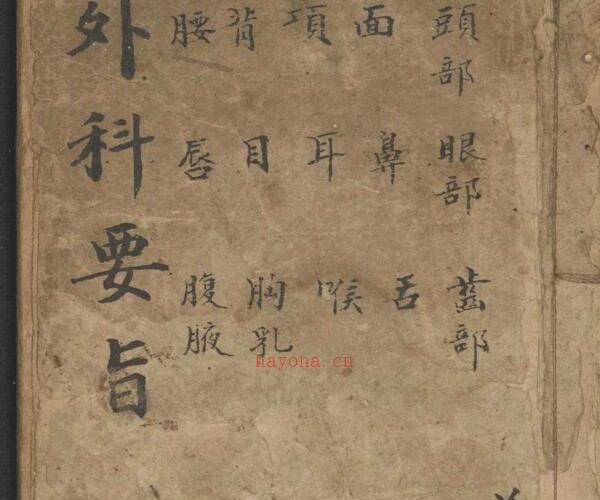 頭部 眼部 齒部
面 鼻 舌
項 耳 喉
背 目 胸乳
腰 唇 腹腋
外科要旨
nayona.cn